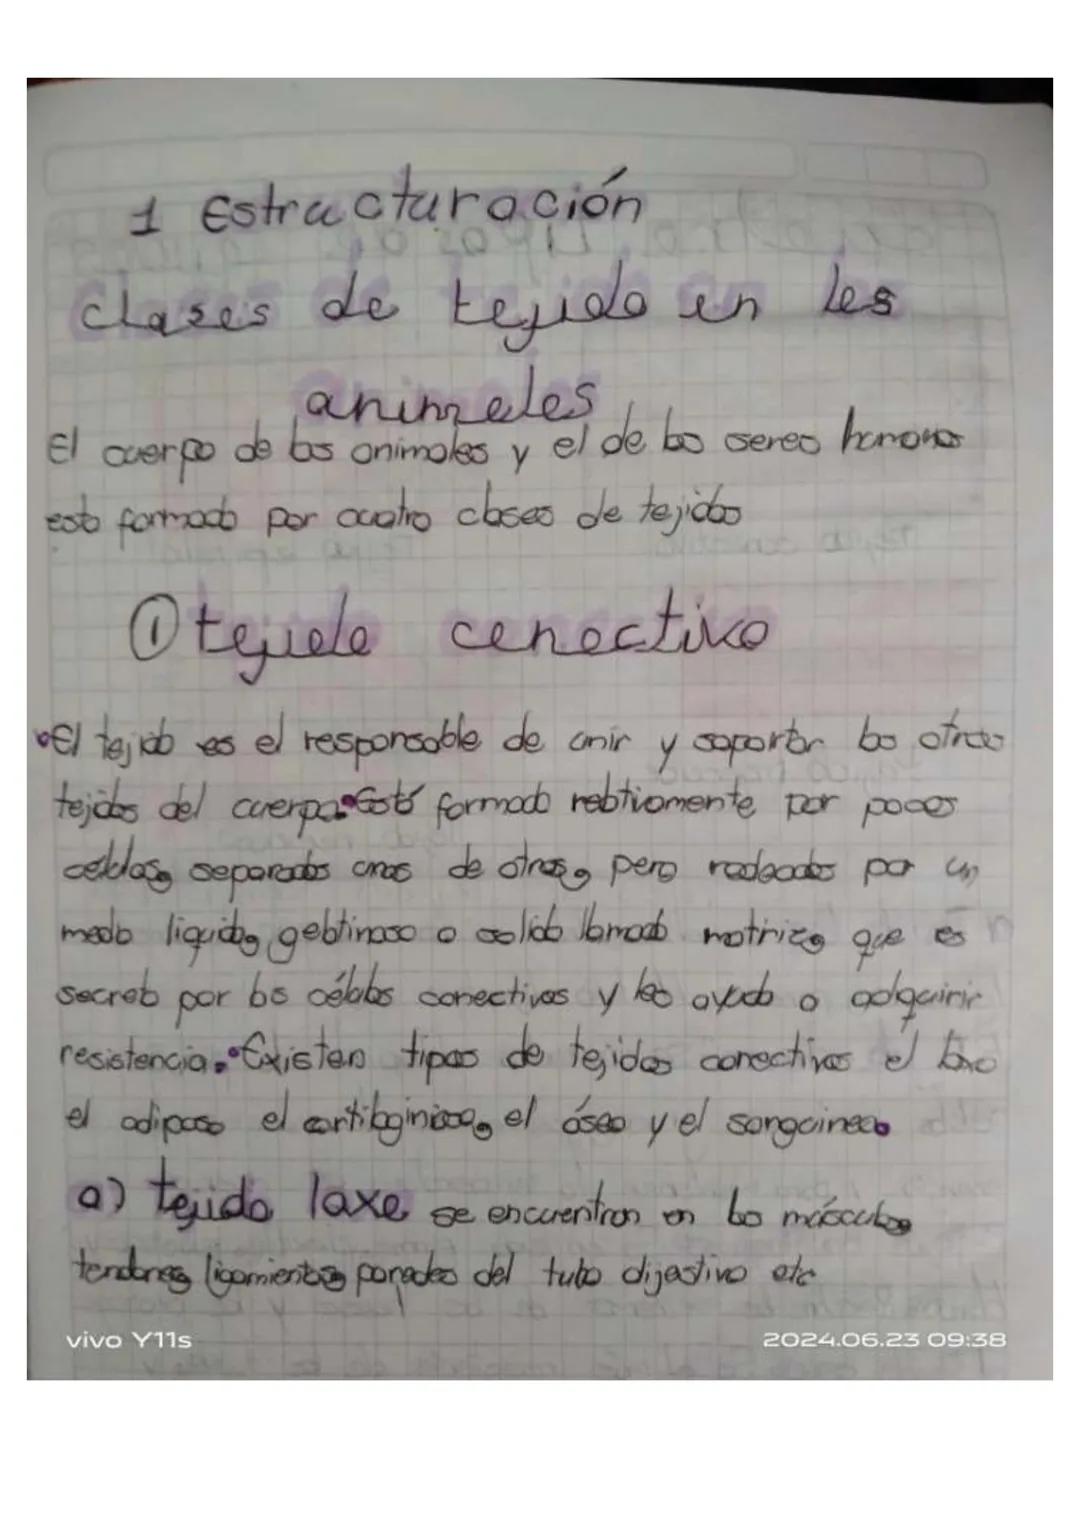 1 Estructuración
clases de tejido en los
animales
El cuerpo de los animales y el de los seres humanos
esta formado por cuatro clases de tejidos
① tejido conectivo
•El tejido es el responsable de unir y soportar los otros
tejidos del cuerpo.•Está formado relativamente por pocas
celulas, separados unas de otras, pero rodeados por un
medio liquido, gelatinoso o solido llamado matriz, que es
secreto por las células conectivas y les ayuda a adquirir
resistencia.•Existen tipos de tejidos conectivos el laxo
el adiposo el cartilaginioso, el óseo y el sanguineo.
a) tejido laxo se encuentran en los músculos
tendones, ligamientos, paredes del tubo dijestivo etc
vivo Y11s
2024.06.23 09:38